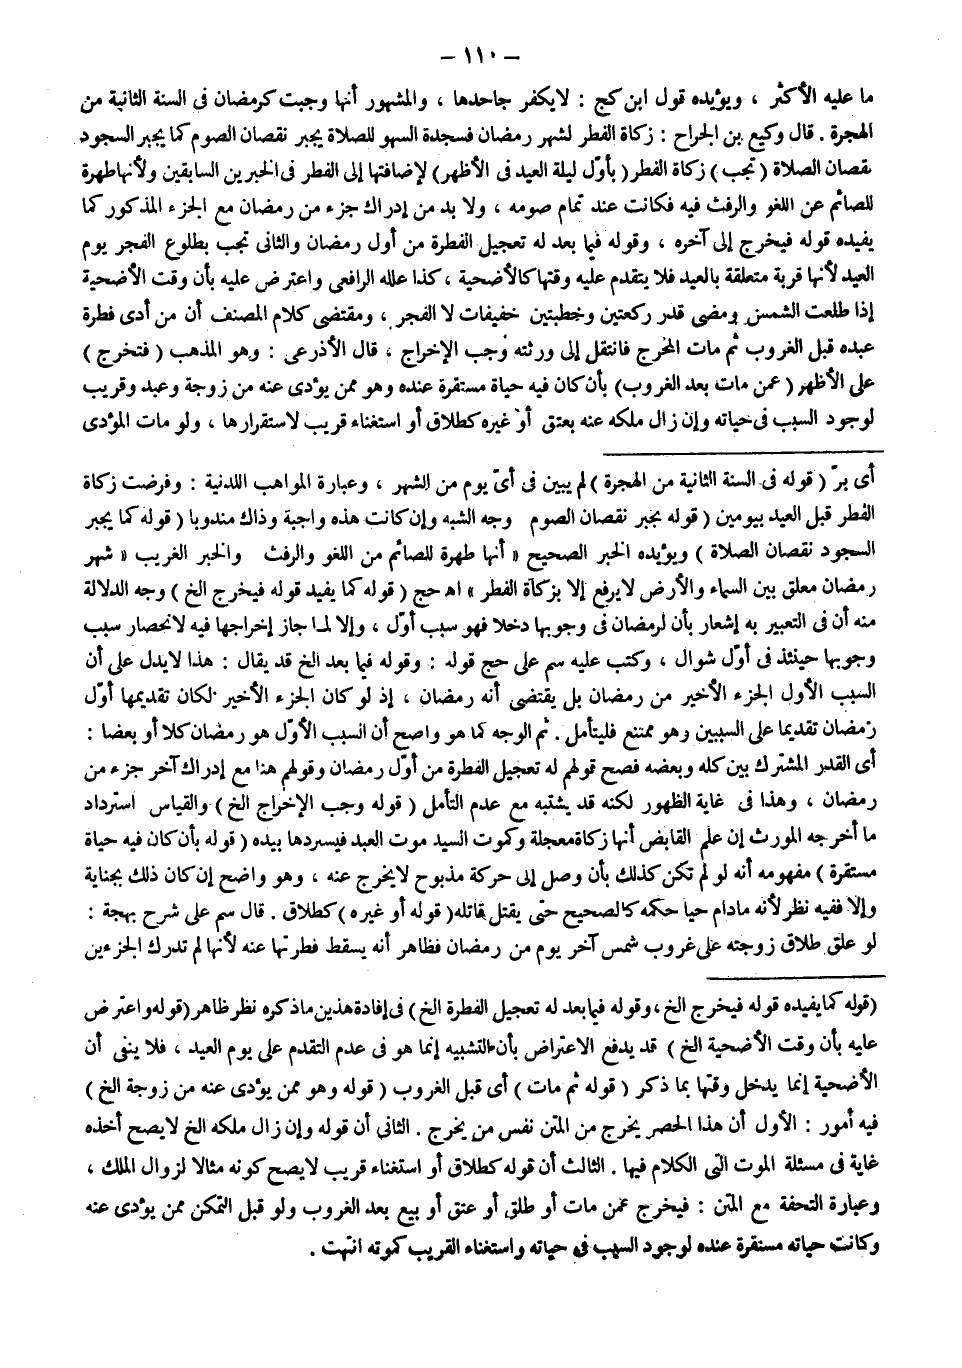 – ١١٠ –
ما عليه الأكثر ، ويؤيده قول ابن كج : لايكفر جاحدها ، والمشهور أنها وجبت كرمضان فى السنة الثانية من
الهجرة . قال وكيع بن الجراح : زكاة الفطر لشهر رمضان فسجدة السهو للصلاة يجبر نقصان الصوم كما يجبر السجود
نقصان الصلاة ( تجب ) زكاة الفطر ( بأوّل ليلة العيد فى الأظهر) لإضافتها إلى الفطر فى الخبرين السابقين ولأنها طهرة
للصائم عن اللغو والرفث فيه فكانت عند تمام صومه ، ولا بد من إدراك جزء من رمضان مع الجزء المذكور كما
يفيده قوله فيخرج إلى آخره ، وقوله فيما بعد له تعجيل الفطرة من أول رمضان والثانى تجب بطلوع الفجر يوم
العيد لأنها قربة متعلقة بالعيد فلا يتقدم عليه وقتها كالأضحية ، كذا علله الرافعى واعترض عليه بأن وقت الأضحية
إذا طلعت الشمس ومضى قدر ركعتين وخطبتين خفيفات لا الفجر ، ومقتضى كلام المصنف أن من أدى فطرة
عبده قبل الغروب ثم مات المخرج فانتقل إلى ورثته وجب الإخراج ، قال الأذرعى : وهو المذهب ( فتخرج )
على الأظهر ( عمن مات بعد الغروب) بأن كان فيه حياة مستقرة عنده وهو ممن يؤدى عنه من زوجة وعبد وقريب
لوجود السبب فى حياته وإن زال ملكه عنه بعتق أو غيره كطلاق أو استغناء قريب لاستقرارها ، ولو مات المؤدى
أى برّ ( قوله فى السنة الثانية من الهجرة ) لم يبين فى أىّ يوم من الشهر ، وعبارة المواهب اللدنية : وفرضت زكاة
الفطر قبل العيد بيومين ( قوله يجبر نقصان الصوم وجه الشبه وإن كانت هذه واجبة وذاك مندوبا ( قوله كما يجبر
السجود نقصان الصلاة ) ويؤيده الخبر الصحيح « أنها طهرة للصائم من اللغو والرفث والخبر الغريب « شهر
رمضان معلق بين السماء والأرض لا يرفع إلا بزكاة الفطر » اهـ حج ( قوله كما يفيد قوله فيخرج الخ ) وجه الدلالة
منه أن فى التعبير به إشعار بأن لرمضان فى وجوبها دخلا فهو سبب أوّل ، وإلا لما جاز إخراجها فيه لانحصار سبب
وجوبها حينئذ فى أوّل شوال ، وكتب عليه سم على حج قوله : وقوله فيما بعد الخ قد يقال : هذا لايدل على أن
السبب الأول الجزء الأخير من رمضان بل يقتضى أنه رمضان ، إذ لو كان الجزء الأخير لكان تقديمها أوّل
رمضان تقديما على السببين وهو ممتنع فليتأمل . ثم الوجه كما هو واضح أن السبب الأوّل هو رمضان كلا أو بعضا :
أى القدر المشترك بين كله وبعضه فصح قولهم له تعجيل الفطرة من أوّل رمضان وقولهم هنا مع إدراك آخر جزء من
رمضان ، وهذا فى غاية الظهور لكنه قد يشتبه مع عدم التأمل ( قوله وجب الإخراج الخ ) والقياس استرداد
ما أخرجه المورث إن علم القابض أنها زكاة معجلة وكموت السيد موت العبد فيستردها بيده ( قوله بأن كان فيه حياة
مستقرة ) مفهومه أنه لو لم تكن كذلك بأن وصل إلى حركة مذبوح لايخرج عنه ، وهو واضح إن كان ذلك بجناية
وإلا ففيه نظر لأنه مادام حيا حكمه كالصحيح حتى يقتل قاتله ( قوله أو غيره ) كطلاق . قال سم على شرح بهجة :
لو علق طلاق زوجته على غروب شمس آخر يوم من رمضان فظاهر أنه يسقط فطرتها عنه لأنها لم تدرك الجزءين
(قوله كما يفيده قوله فيخرج الخ ، وقوله فيما بعد له تعجيل الفطرة الخ ) فى إفادة هذين ماذكره نظر ظاهر (قوله واعترض
عليه بأن وقت الأضحية الخ ) قد يدفع الاعتراض بأن التشبيه إنما هو فى عدم التقدم على يوم العيد ، فلا ينفى أن
الأضحية إنما يدخل وقتها بما ذكر ( قوله ثم مات ) أى قبل الغروب ( قوله وهو ممن يؤدى عنه من زوجة الخ )
فيه أمور : الأول أن هذا الحصر يخرج من المتن نفس من يخرج . الثانى أن قوله وإن زال ملكه الخ لايصح أخذه
غاية فى مسئلة الموت التى الكلام فيها . الثالث أن قوله كطلاق أو استغناء قريب لايصح كونه مثالا لزوال الملك ،
وعبارة التحفة مع المتن : فيخرج عمن مات أو طلق أو عتق أو بيع بعد الغروب ولو قبل التمكن ممن يؤدى عنه
وكانت حياته مستقرة عنده لوجود السبب فى حياته واستغناء القريب كموته انتهت .